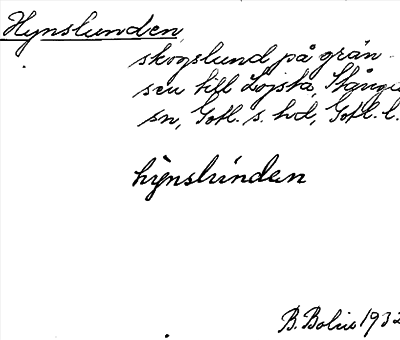 Hynslunden
skogslund på grän-
sen till Lojsta, Stånga
sn, Gotl. s. hd, Gotl. l.
hy̆nslúnden
B. Bolin 1932